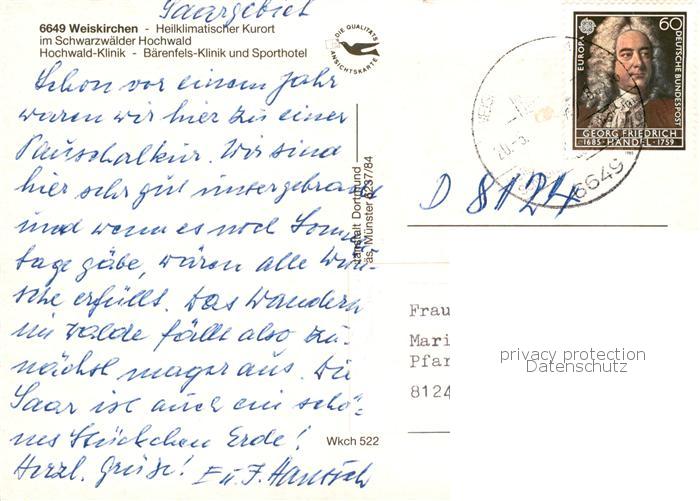 Saargebiet
6649 Weiskirchen - Heilklimatischer Kurort
im Schwarzwälder Hochwald
Hochwald-Klinik - Bärenfels-Klinik und Sporthotel
DIE QUALITÄTS
ANSICHTSKARTE
Schon vor einem Jahr
waren wir hier zu einer
Pauschalkur. Wir sind
hier sehr gut untergebracht
und wenn es noch Sonn-
tage gäbe, wären alle Wün-
sche erfüllt. Das Wandern
im Walde fällt also zu-
nächst mager aus. Die
Saar ist auch ein schö-
nes Stückchen Erde!
Herzl. Grüße! E u. F.
Wkch 522
anstalt Dortmund
äs. Münster 6237/84
EUROPA
60
DEUTSCHE BUNDESPOST
GEORG FRIEDRICH
1685 HÄNDEL 1759
20.-3.
6649
D 8124
Frau
Mari
Pfar
8124
privacy protection
Datenschutz